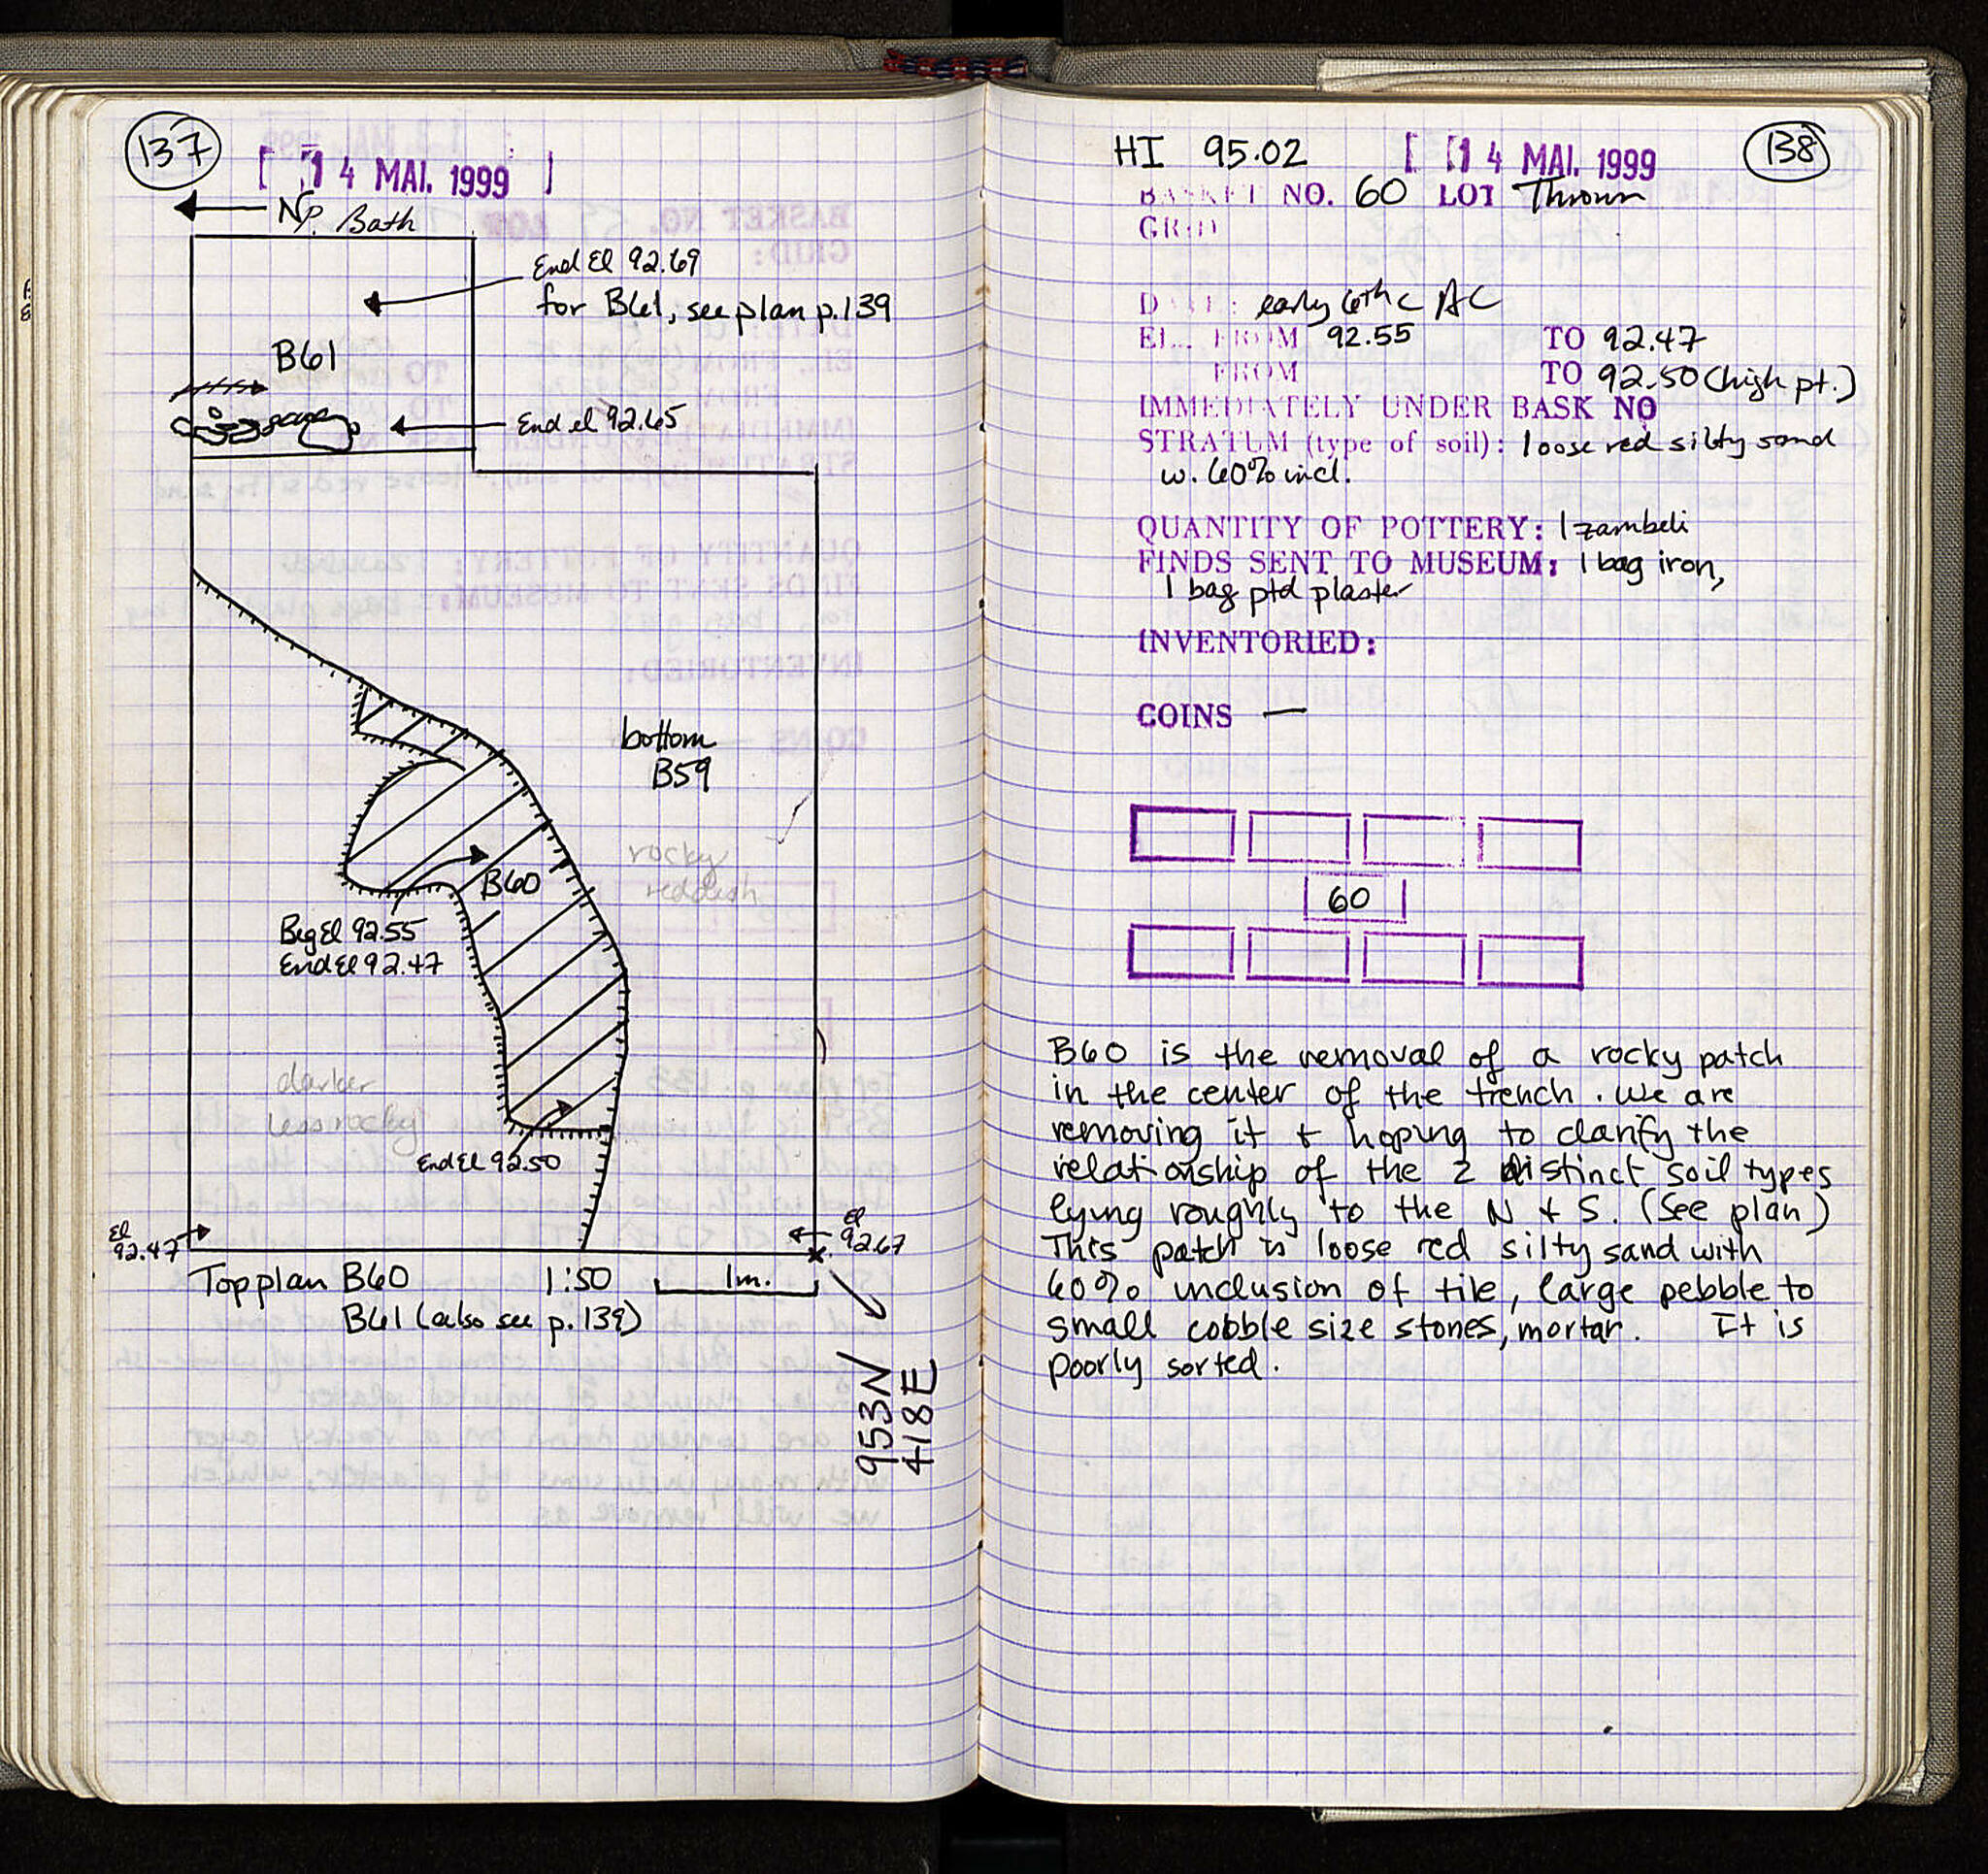 137
14 MAI. 1999
N
P. Bath
End El 92.69
for B61, see plan p.139
B61
End el 92.65
bottom
B59
rocky
reddish
B60
Beg El 92.55
End El 92.47
darker
less rocky
End El 92.50
El
92.47
El
92.67
Top plan B60 1:50 1m.
B61 (also see p.139)
953N
418E
HI 95.02 14 MAI. 1999 138
BASKET NO. 60 LOT Thrown
GRID
DATE: early 6th c AC
EL. FROM 92.55 TO 92.47
FROM TO 92.50 (high pt.)
IMMEDIATELY UNDER BASK NO
STRATUM (type of soil): loose red silty sand
w. 60% incl.
QUANTITY OF POTTERY: 1 zambeli
FINDS SENT TO MUSEUM: 1 bag iron,
1 bag ptd plaster
INVENTORIED:
COINS —
60
B60 is the removal of a rocky patch
in the center of the trench. We are
removing it + hoping to clarify the
relationship of the 2 distinct soil types
lying roughly to the N + S. (See plan)
This patch is loose red silty sand with
60% inclusion of tile, large pebble to
small cobble size stones, mortar. It is
poorly sorted.